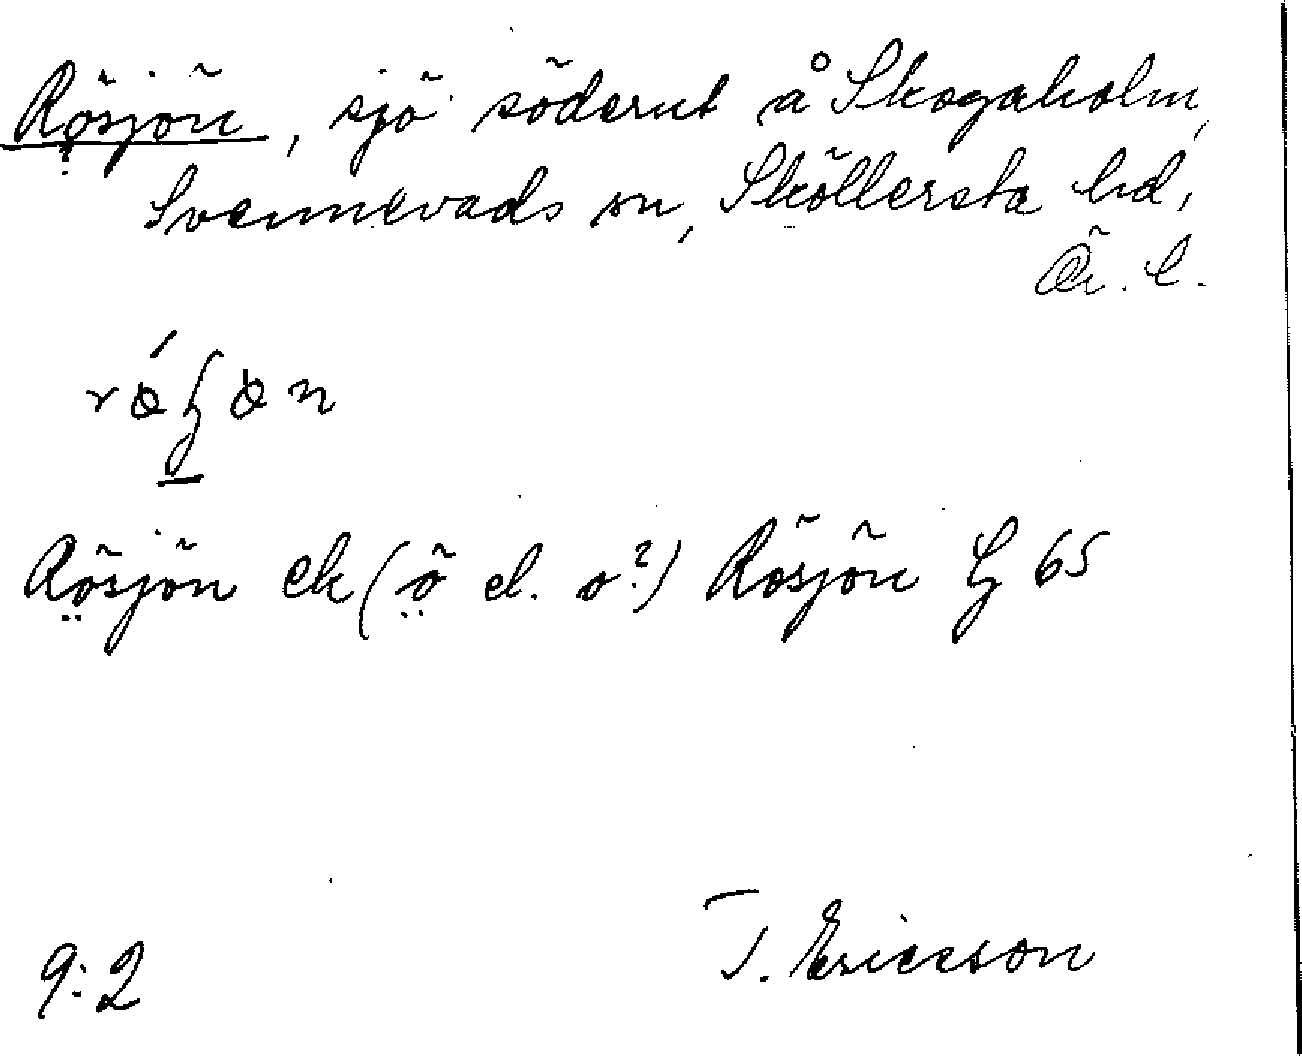 Rösjön, sjö söderut å Skogaholm,
Svennevads sn, Sköllersta hd,
Ör. l.
Rösjön ek (ö el. o?) Rösjön G 65
9:2 T. Ericsson